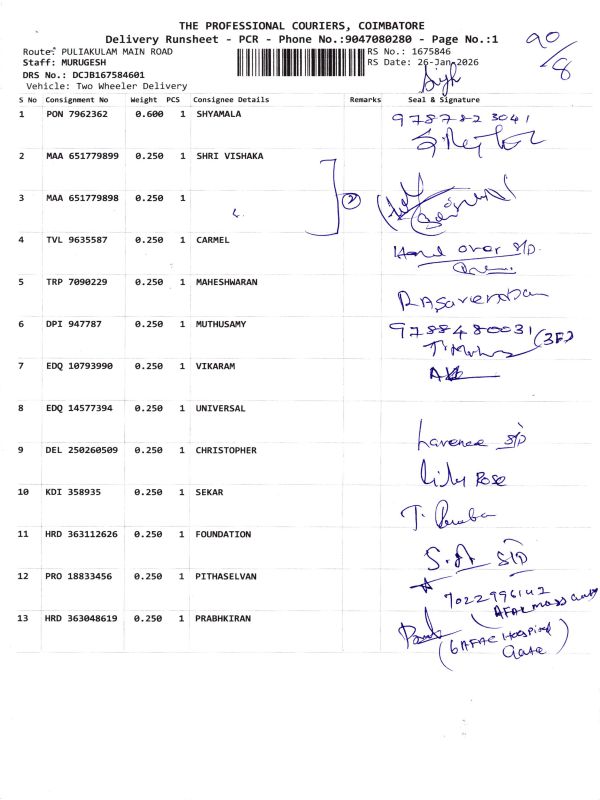 THE PROFESSIONAL COURIERS, COIMBATORE
Delivery Runsheet - PCR - Phone No.:9047080280 - Page No.:1
90/8
Route: PULIAKULAM MAIN ROAD
RS No.: 1675846
Staff: MURUGESH
RS Date: 26-Jan-2026
DRS No.: DCJB167584601
Vehicle: Two Wheeler Delivery
S No Consignment No Weight PCS Consignee Details Remarks Seal & Signature
1 PON 7962362 0.600 1 SHYAMALA 9787823041
2 MAA 651779899 0.250 1 SHRI VISHAKA
3 MAA 651779898 0.250 1 2
4 TVL 9635587 0.250 1 CARMEL Hand over S/D.
5 TRP 7090229 0.250 1 MAHESHWARAN
6 DPI 947787 0.250 1 MUTHUSAMY 9788480031 (3F)
7 EDQ 10793990 0.250 1 VIKARAM
8 EDQ 14577394 0.250 1 UNIVERSAL Larence S/D
9 DEL 250260509 0.250 1 CHRISTOPHER Lily Rose
10 KDI 358935 0.250 1 SEKAR
11 HRD 363112626 0.250 1 FOUNDATION S/D
12 PRO 18833456 0.250 1 PITHASELVAN 7022996142
13 HRD 363048619 0.250 1 PRABHKIRAN (6 AFAC Hospital
Gate)